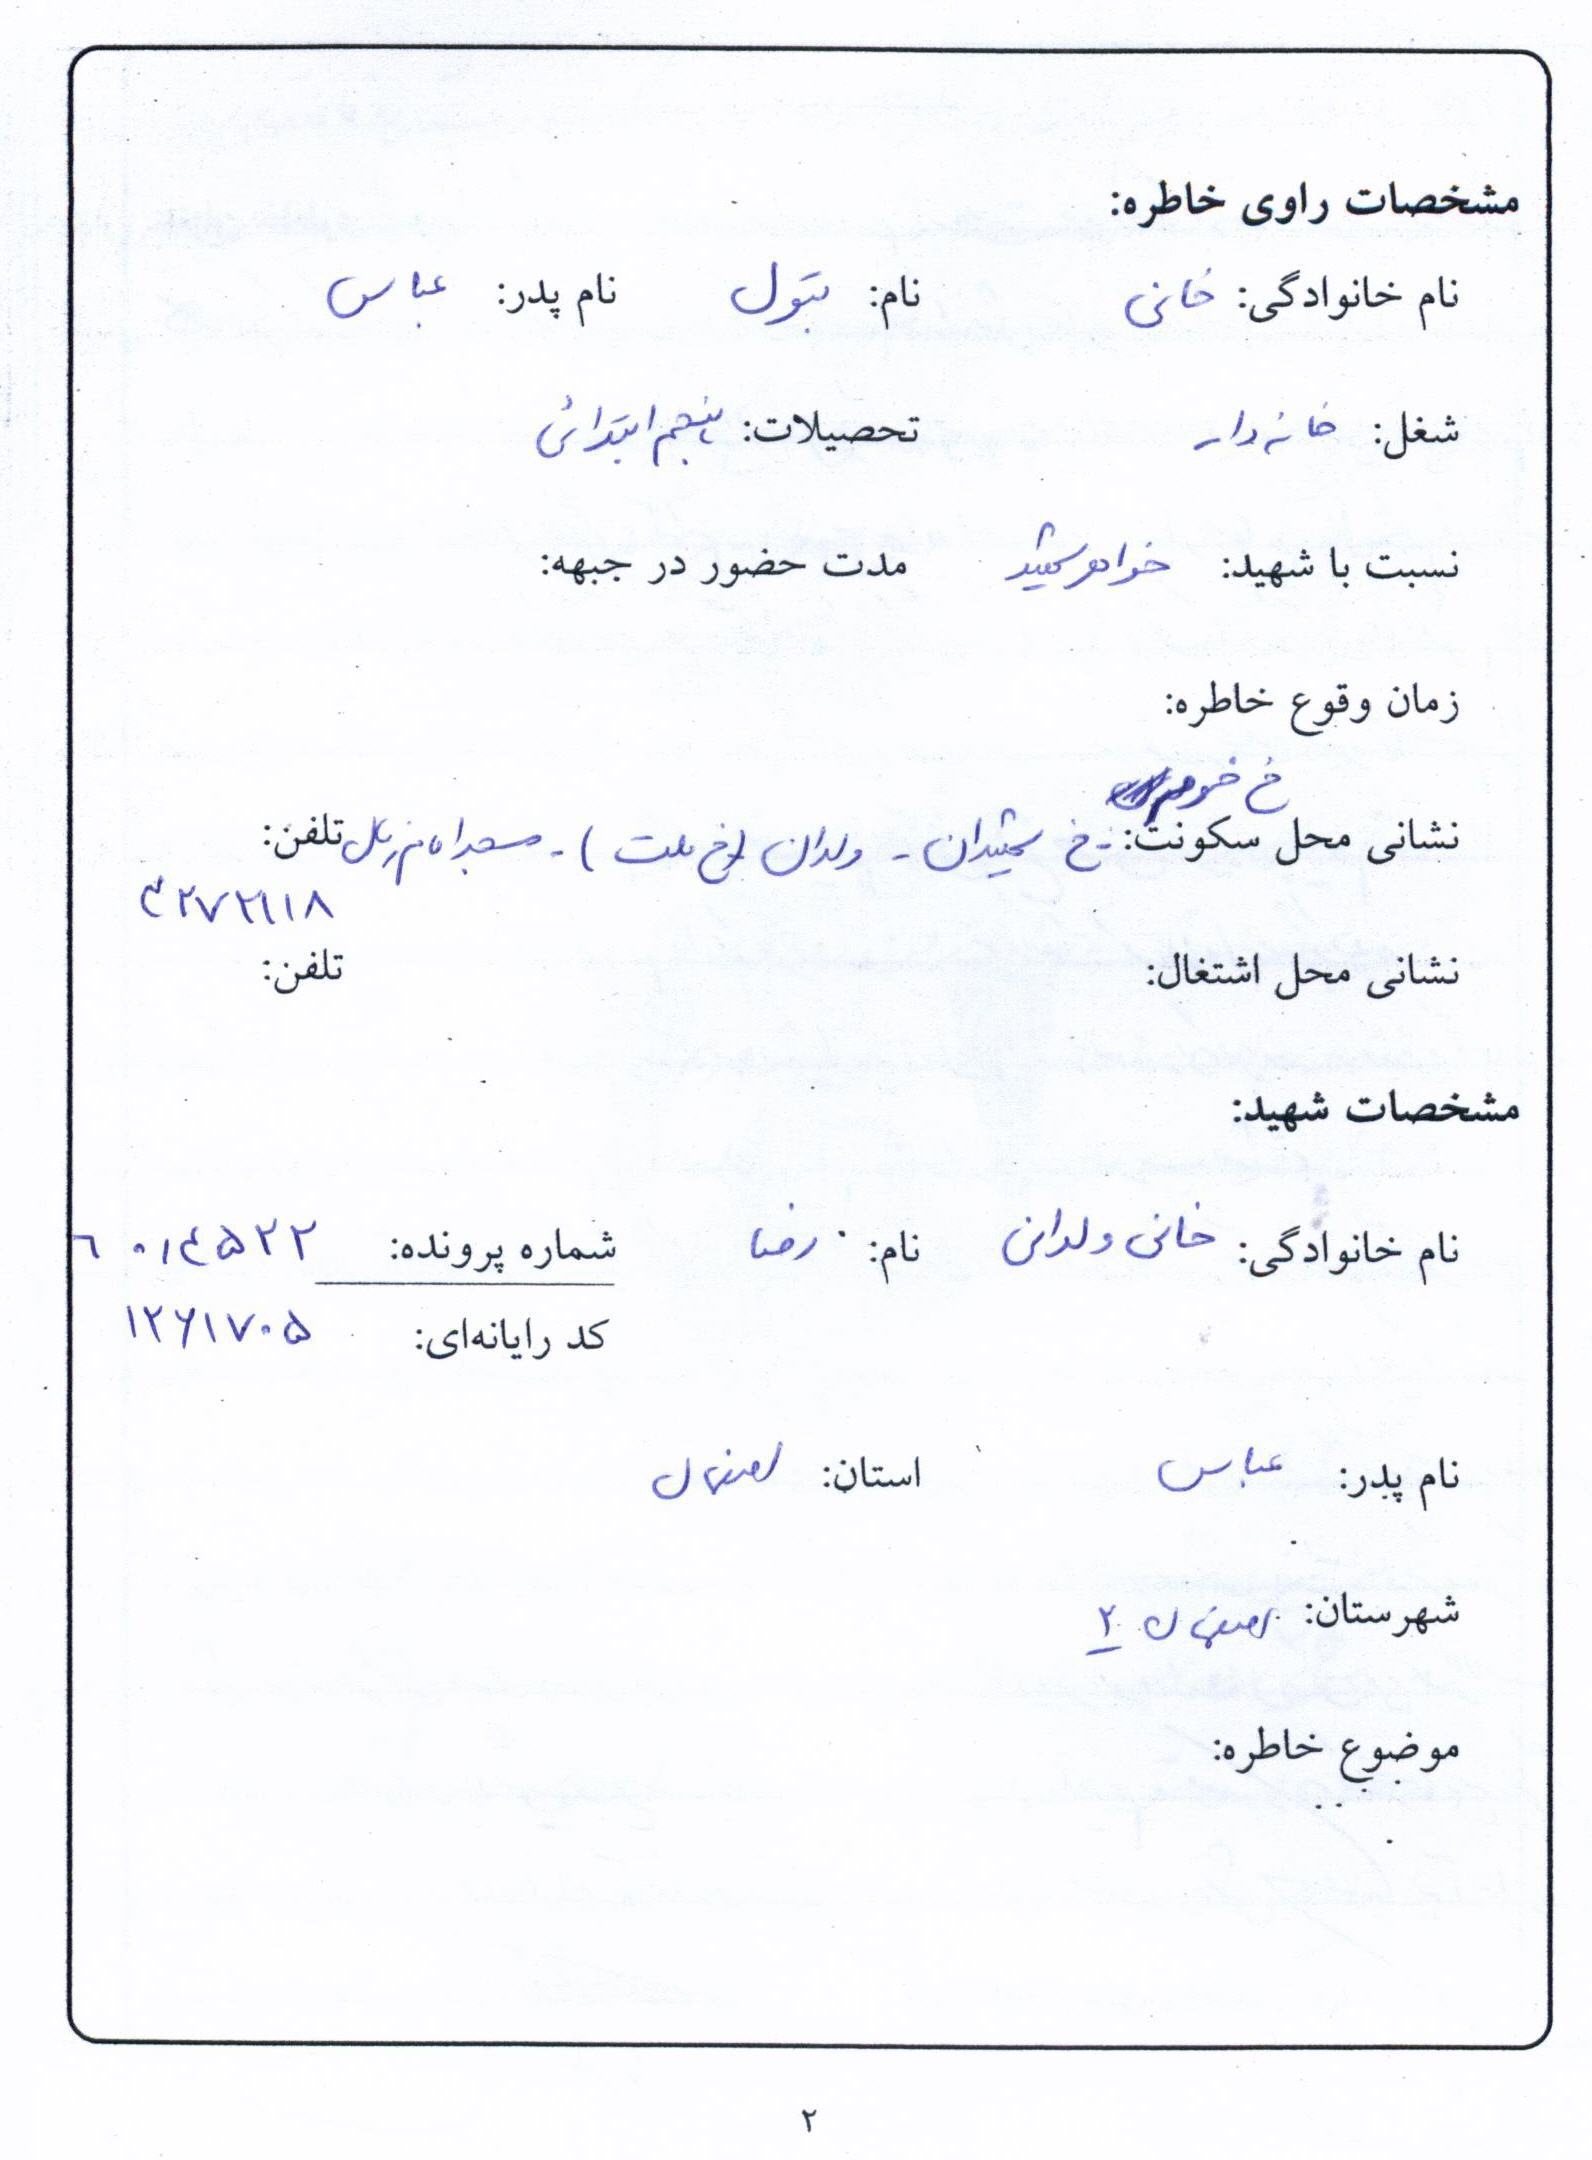 مشخصات راوی خاطره:
نام خانوادگی: خانی نام: بتول نام پدر: عباس
شغل: خانه دار تحصیلات: پنجم ابتدائی
نسبت با شهید: خواهر شهید مدت حضور در جبهه:
زمان وقوع خاطره:
خ
نشانی محل سکونت: خ شهیدان - ولدان (خ ملت) - مسجد تلفن:
نشانی محل اشتغال: تلفن:
مشخصات شهید:
نام خانوادگی: خانی ولدانی نام: رضا شماره پرونده:
کد رایانه‌ای: ۱۲۶۱۷۰۵
نام پدر: عباس استان: اصفهان
شهرستان: اصفهان ۲
موضوع خاطره:
۲